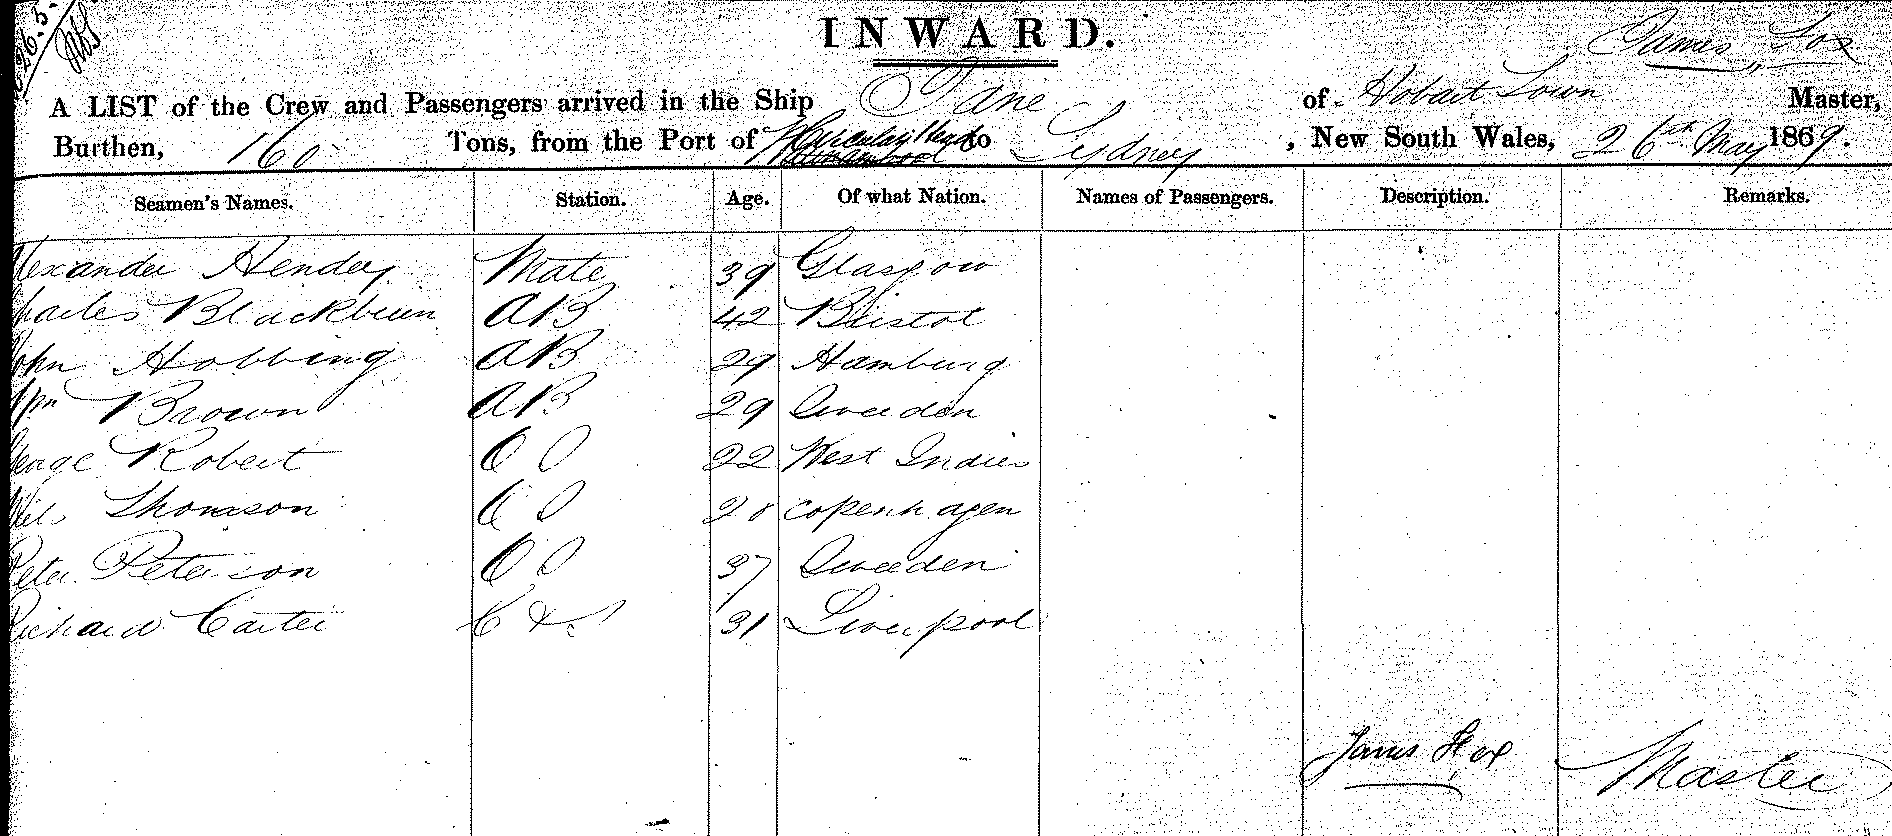 INWARD.
James Fox
A LIST of the Crew and Passengers arrived in the Ship Jane of Hobart Town Master,
Burthen, 160 Tons, from the Port of to Sydney, New South Wales, 26th May 1869.
Seamen's Names. Station. Age. Of what Nation. Names of Passengers. Description. Remarks.
exander Hendey Mate 39 Glasgow
harles Blackburn AB 42 Bristol
John Hobbing AB 29 Hamburg
Wm Brown AB 29 Sweeden
George Robert OS 22 West Indies
Niels Thomson OS 28 copenhagen
Peter Peterson OS 37 Sweeden
Richard Carter C & S 31 Liverpool
James Fox Master